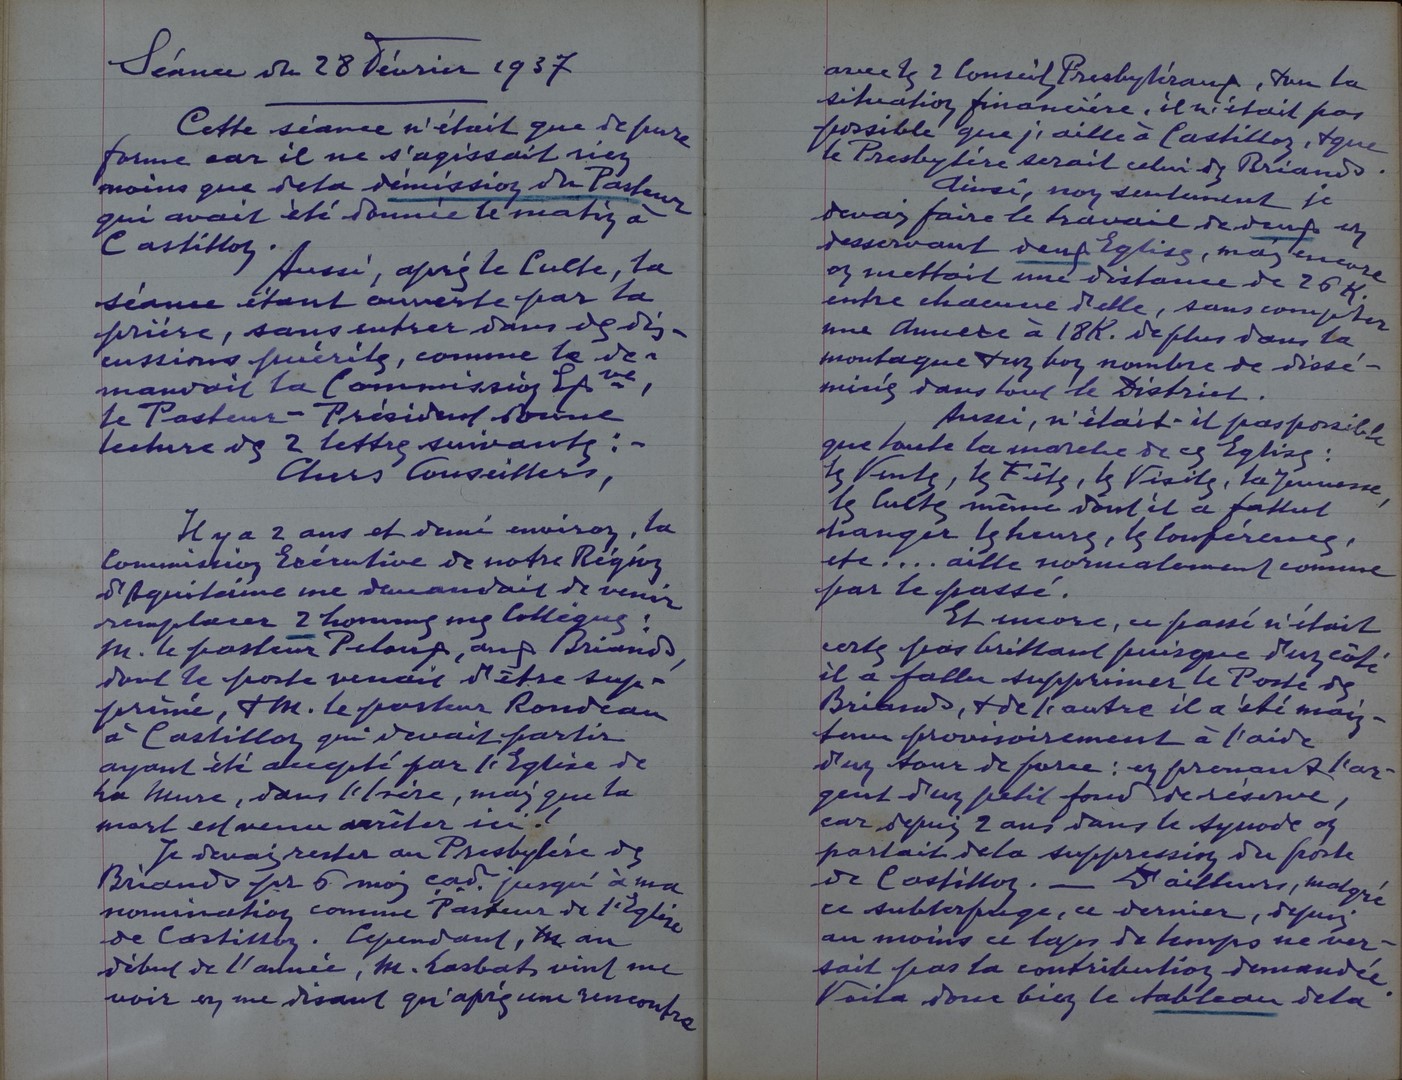 Séance du 28 Février 1937
Cette séance n'était que de pure
forme car il ne s'agissait rien
moins que de la démission du Pasteur
qui avait été donnée le matin à
Castillon.
Aussi, après le Culte, la
séance étant ouverte par la
prière, sans entrer dans des dis-
cussions puériles, comme le de-
mandait la Commission Exve,
le Pasteur-Président donne
lecture des 2 lettres suivantes :-
Chers Conseillers,
Il y a 2 ans et demi environ, la
Commission Exécutive de notre Région
d'Aquitaine me demandait de venir
remplacer 2 hommes mes Collègues :
M. le pasteur Peloux, aux Briands,
dont le poste venait d'être sup-
primé, & M. le pasteur Rondeau
à Castillon qui devait partir
ayant été accepté par l'Eglise de
La Mure, dans l'Isère, mais que la
mort est venu arrêter ici !
Je devais rester au Presbytère des
Briands pr 6 mois càd. jusqu'à ma
nomination comme Pasteur de l'Eglise
de Castillon. Cependant, au
début de l'année, M. Lasbats vint me
voir en me disant qu'après une rencontre
avec les 2 Conseils Presbytéraux, & vu la
situation financière, il n'était pas
possible que j'aille à Castillon, & que
le Presbytère serait celui des Briands.
Ainsi, non seulement je
devais faire le travail de deux en
desservant deux Eglises, mais encore
on mettait une distance de 26 K.
entre chacune d'elle, sans compter
une Annexe à 18K. de plus dans la
montagne & un bon nombre de dissé-
minés dans tout le District.
Aussi, n'était-il pas possible
que toute la marche de ces Eglises :
les Ventes, les Fêtes, les Visites, la Jeunesse,
les Cultes même dont il a fallut
hanger les heures, les Conférences,
etc.... aille normalement comme
par le passé.
Et encore, ce passé n'était
certes pas brillant puisque d'un côté
il a fallu supprimer le Poste des
Briands, & de l'autre il a été main-
tenu provisoirement à l'aide
d'un tour de force : en prenant l'ar-
gent d'un petit fond de reserve,
car depuis 2 ans dans le synode on
parlait de la suppression du poste
de Castillon. — D'ailleurs, malgré
ce subterfuge, ce dernier, depuis
au moins ce laps de temps ne ver-
sait pas la contribution demandée.
Voila donc bien le tableau de la